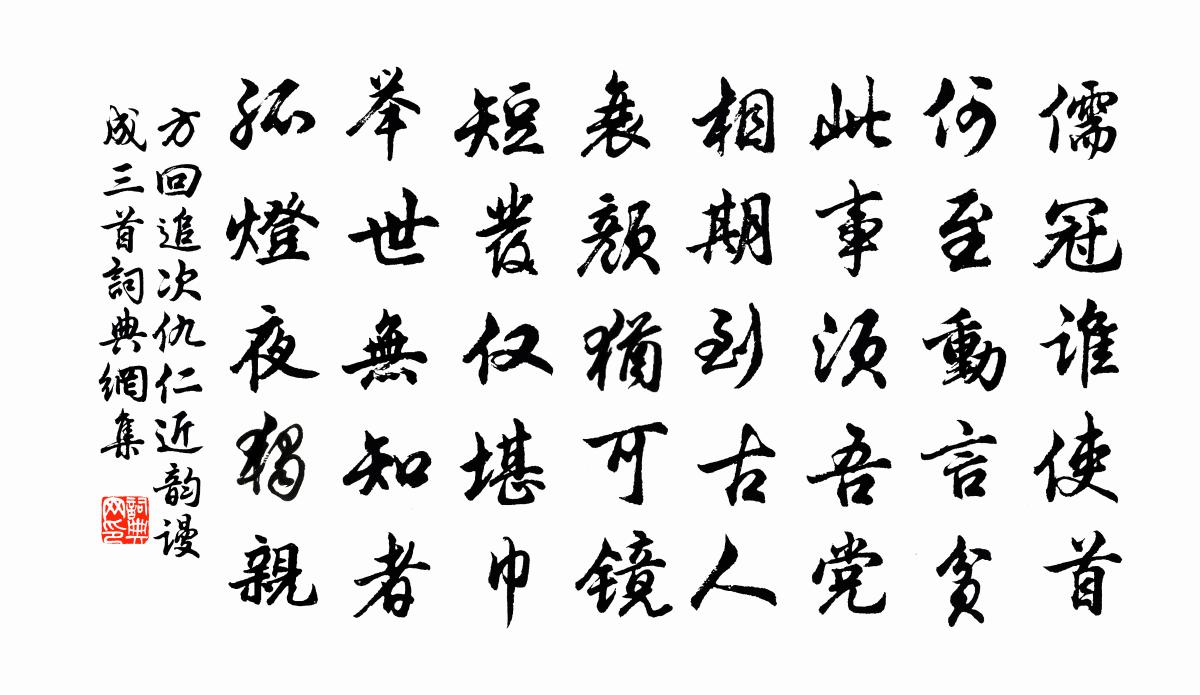 儒冠谁使首
何至動言貧
此事须吾党
相期到古人
衰顏猶可鏡
短发仅堪巾
举世無知者
孤燈夜獨親
方回追次仇仁近韵谩
成三首詞典網集
詞典网印